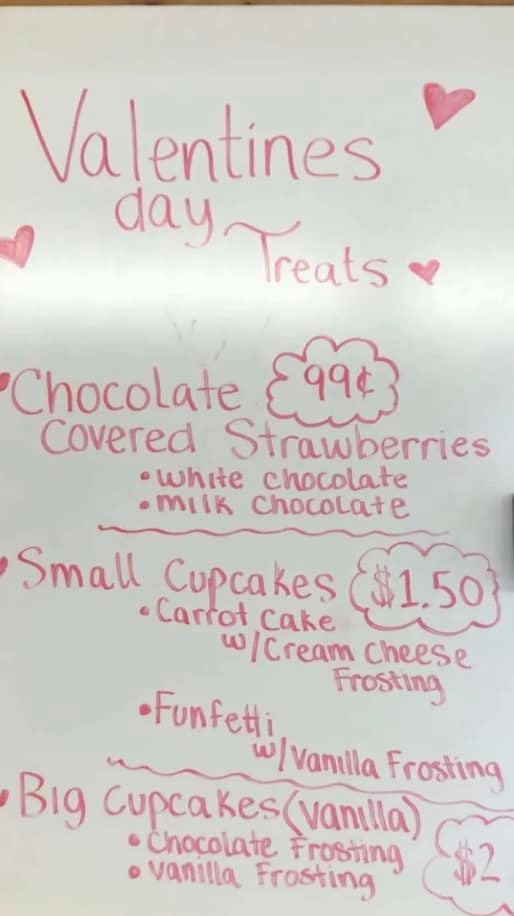 Valentines
day
Treats
• Chocolate 99¢
Covered Strawberries
• White chocolate
• milk chocolate
• Small Cupcakes $1.50
• Carrot Cake
w/Cream cheese
Frosting
• Funfetti
w/Vanilla Frosting
• Big Cupcakes (Vanilla)
• Chocolate Frosting $2
• Vanilla Frosting